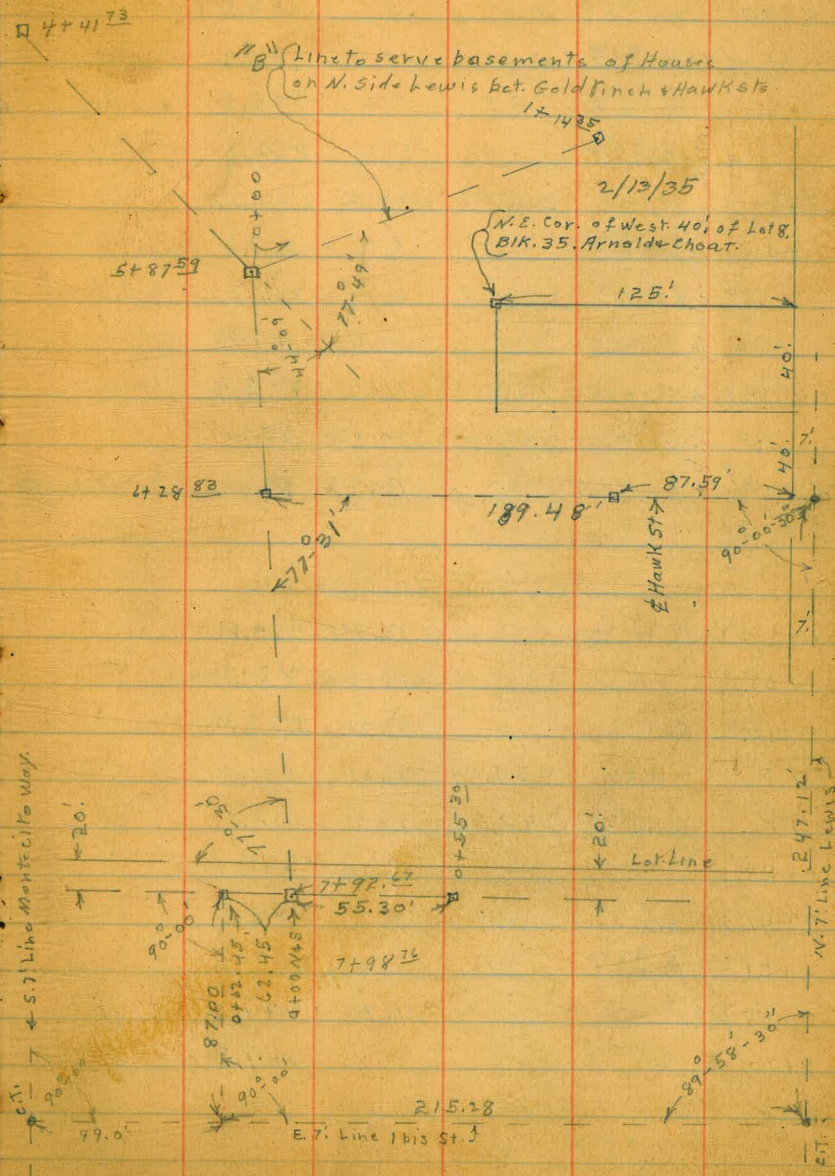 4+41 73
"B" Line to serve basements of Houses
on N. Side Lewis bet. Goldfinch & Hawk sts
1+14 35
2/13/35
0+00
N.E. Cor. of West. 40' of Lot 8.
Blk. 35. Arnold & Choat.
5+87 59
125'
77°-49'
44°-09'
40'
7'
40'
6+28 83
87.59'
189.48'
90°-00'-30"
77°-31'
₵ Hawk St
7'
S. 7' Line Montecito Way.
20'
77°-30'
0+55 30
20'
Lot Line
247.12'
N. 7' Line Lewis
7+92.67
55.30'
90°-00'
7+98 76
87.00
0+62.45'
62.45'
0+00 N&S
89°-58'-30"
90°-00'
90°-00'
C.T.
215.28
99.0'
E. 7' Line Ibis St.
C.T.